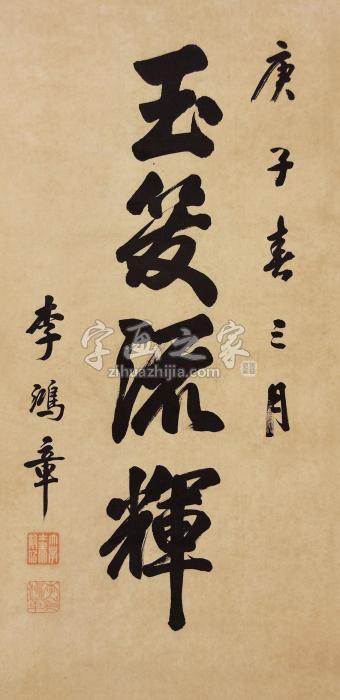 庚子春三月
玉笈流輝
李鴻章
字画之家
zihuazhijia.com